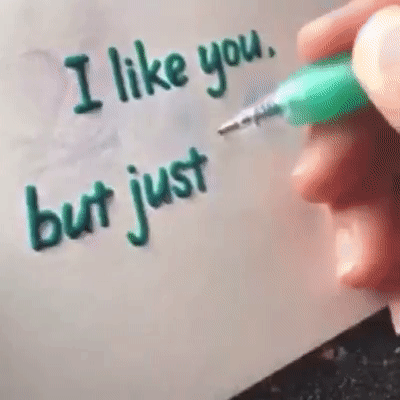 I like you.
but just